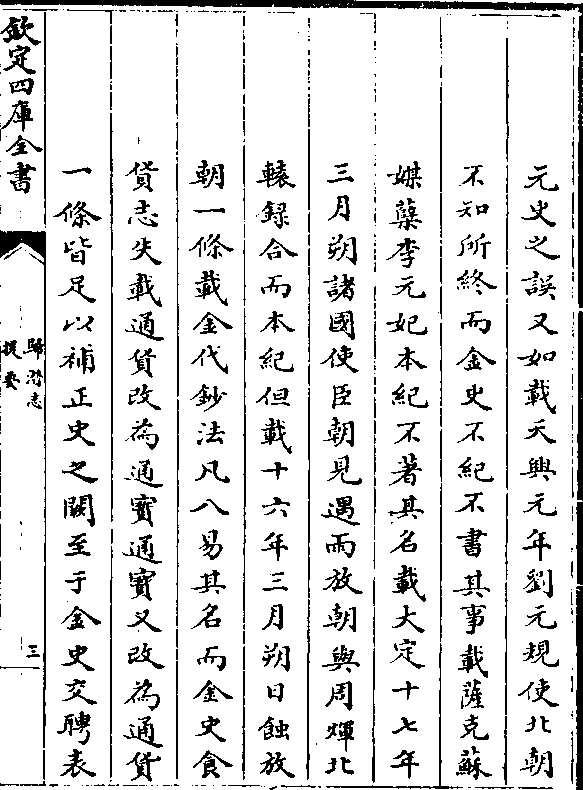 元史之誤又如載天興元年劉元規使北朝
不知所終而金史不紀不書其事載薩克蘇
媒蘖李元妃本紀不著其名載大定十七年
三月朔諸國使臣朝見遇雨放朝與周煇北
轅録合而本紀但載十六年三月朔日蝕放
朝一條載金代鈔法凡八易其名而金史食
貨志失載通貨改為通寳通寳又改為通貨
一條皆足以補正史之闕至于金史交聘表
欽定四庫全書
歸潛志
提要
三